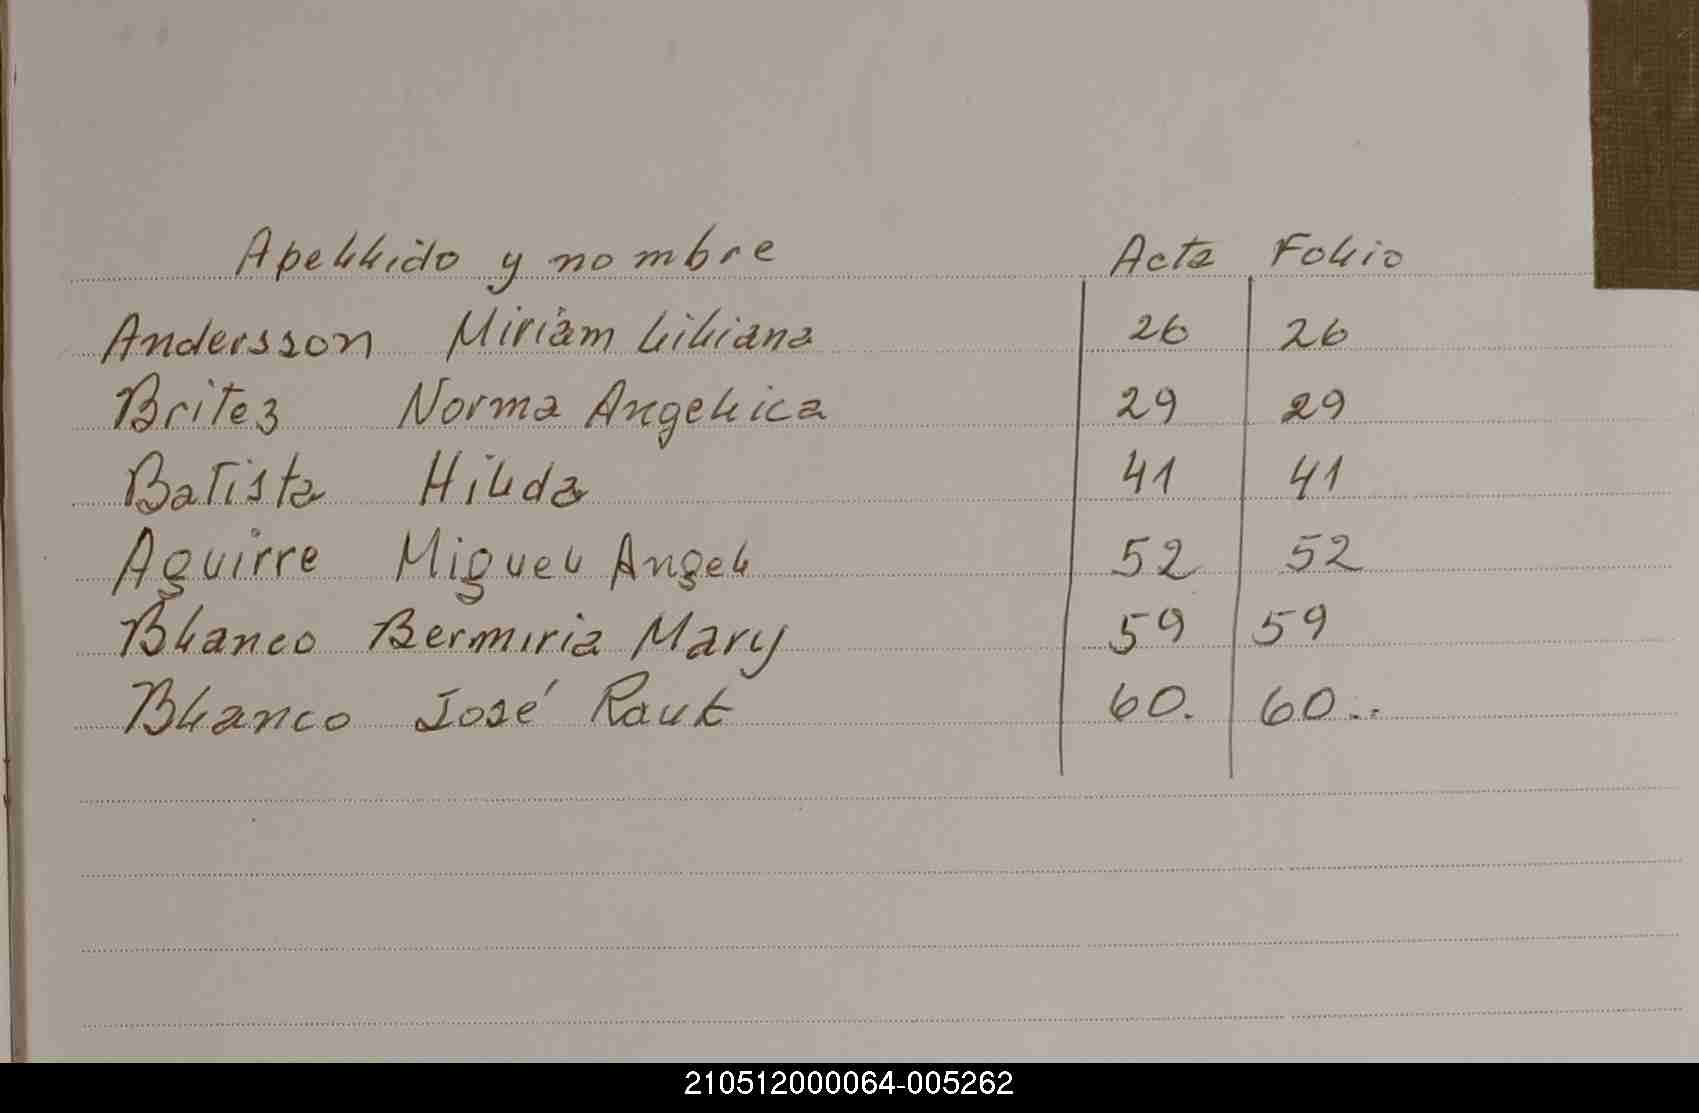 Apellido y nombre Acta Folio
Andersson Miriam Liliana 26 26
Britez Norma Angelica 29 29
Batista Hilda 41 41
Aguirre Miguel Angel 52 52
Blanco Bermiria Mary 59 59
Blanco José Raul 60. 60...
210512000064-005262